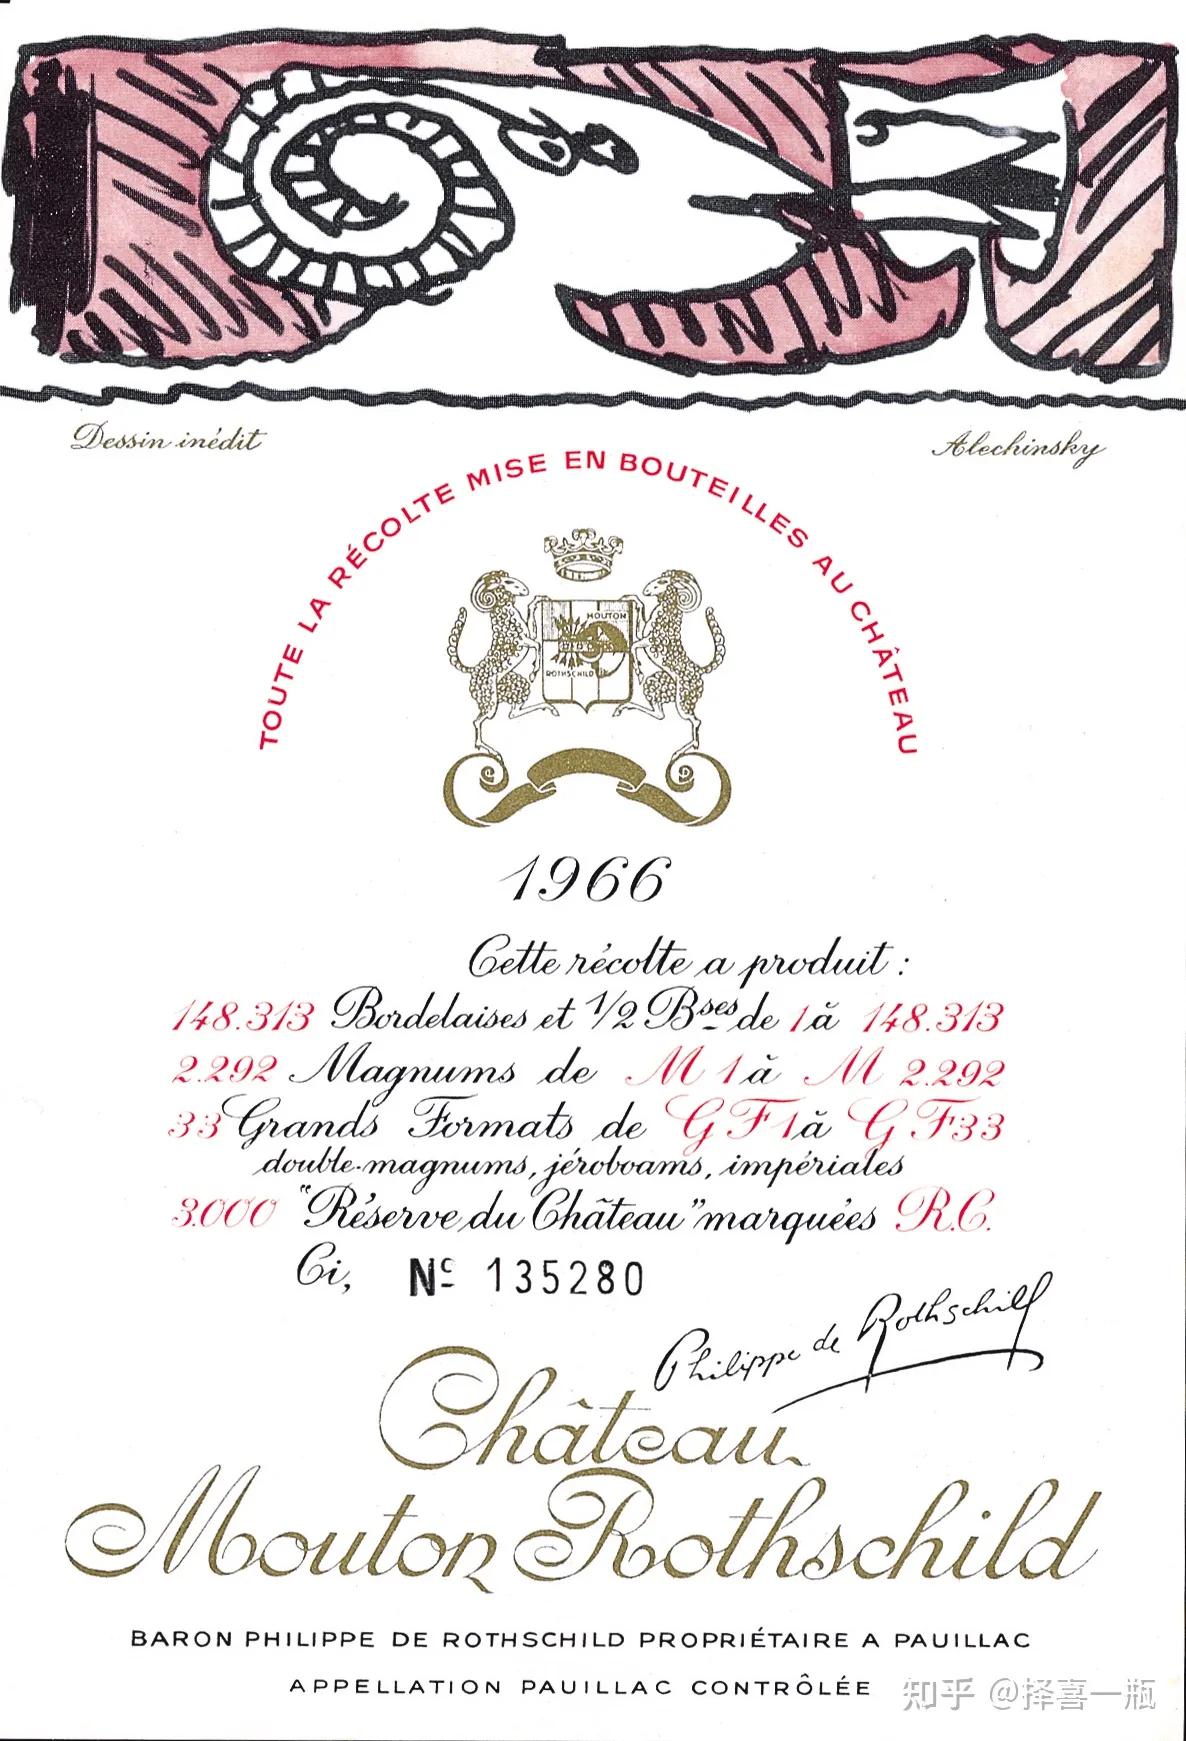 Dessin inédit
Alechinsky
TOUTE LA RÉCOLTE MISE EN BOUTEILLES AU CHÂTEAU
MOUTON
ROTHSCHILD
1966
Cette récolte a produit :
148.313 Bordelaises et 1/2 Bses de 1 à 148.313
2.292 Magnums de M 1 à M 2.292
33 Grands Formats de G F 1 à G F 33
double-magnums, jéroboams, impériales
3.000 "Réserve du Château" marquées R.C.
Ci, Nº 135280
Philippe de Rothschild
Château
Mouton Rothschild
BARON PHILIPPE DE ROTHSCHILD PROPRIÉTAIRE A PAUILLAC
APPELLATION PAUILLAC CONTRÔLÉE
知乎 @择喜一瓶